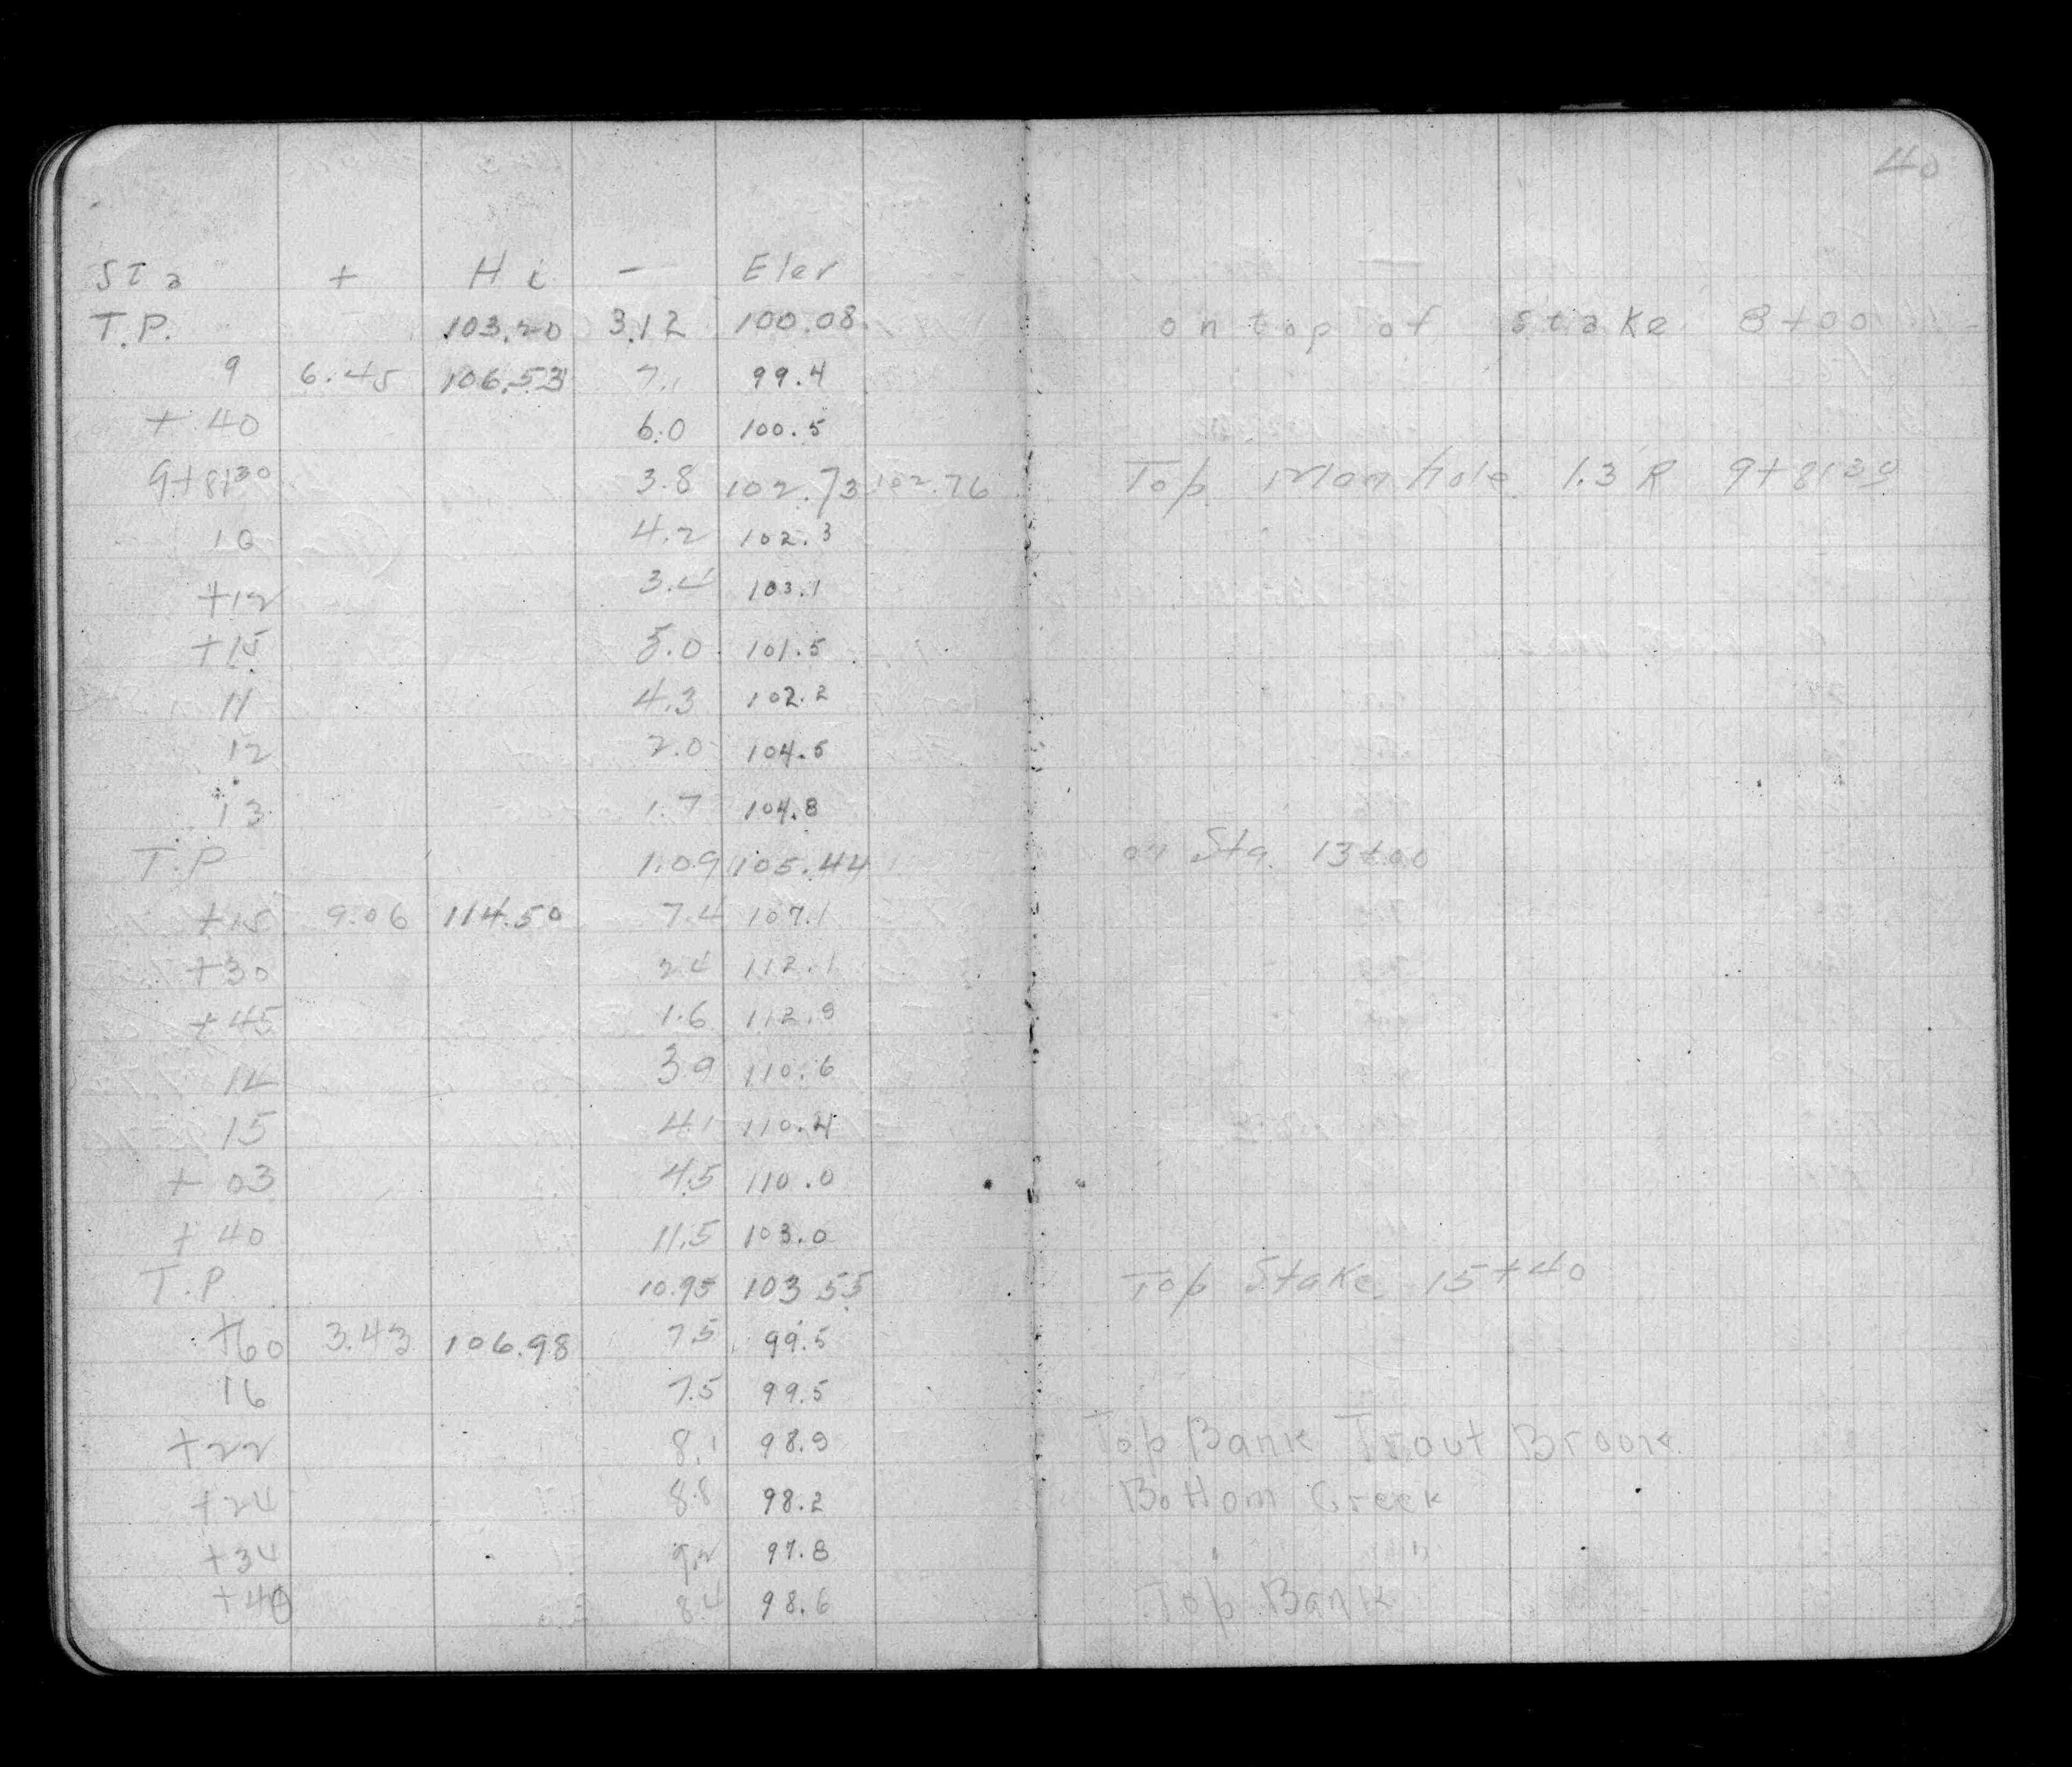 40
Sta + Hi - Elev
T.P. 103.20 3.12 100.08 on top of stake 8+00
9 6.45 106.53 7.1 99.4
+40 6.0 100.5
9+8130 3.8 102.73 102.76 Top Manhole 1.3 R 9+8130
10 4.2 102.3
+12 3.4 103.1
+15 5.0 101.5
11 4.3 102.2
12 2.0 104.5
13 1.7 104.8
T.P 1.09 105.44 on Sta. 13+00
+15 9.06 114.50 7.4 107.1
+30 2.4 112.1
+45 1.6 112.9
14 3.9 110.6
15 4.1 110.4
+03 4.5 110.0
+40 11.5 103.0
T.P 10.95 103.55 Top Stake 15+40
+60 3.43 106.98 7.5 99.5
16 7.5 99.5
+22 8.1 98.9 Top Bank Trout Brook
+24 8.8 98.2 Bottom Creek
+34 9.2 97.8 " "
+40 8.4 98.6 Top Bank